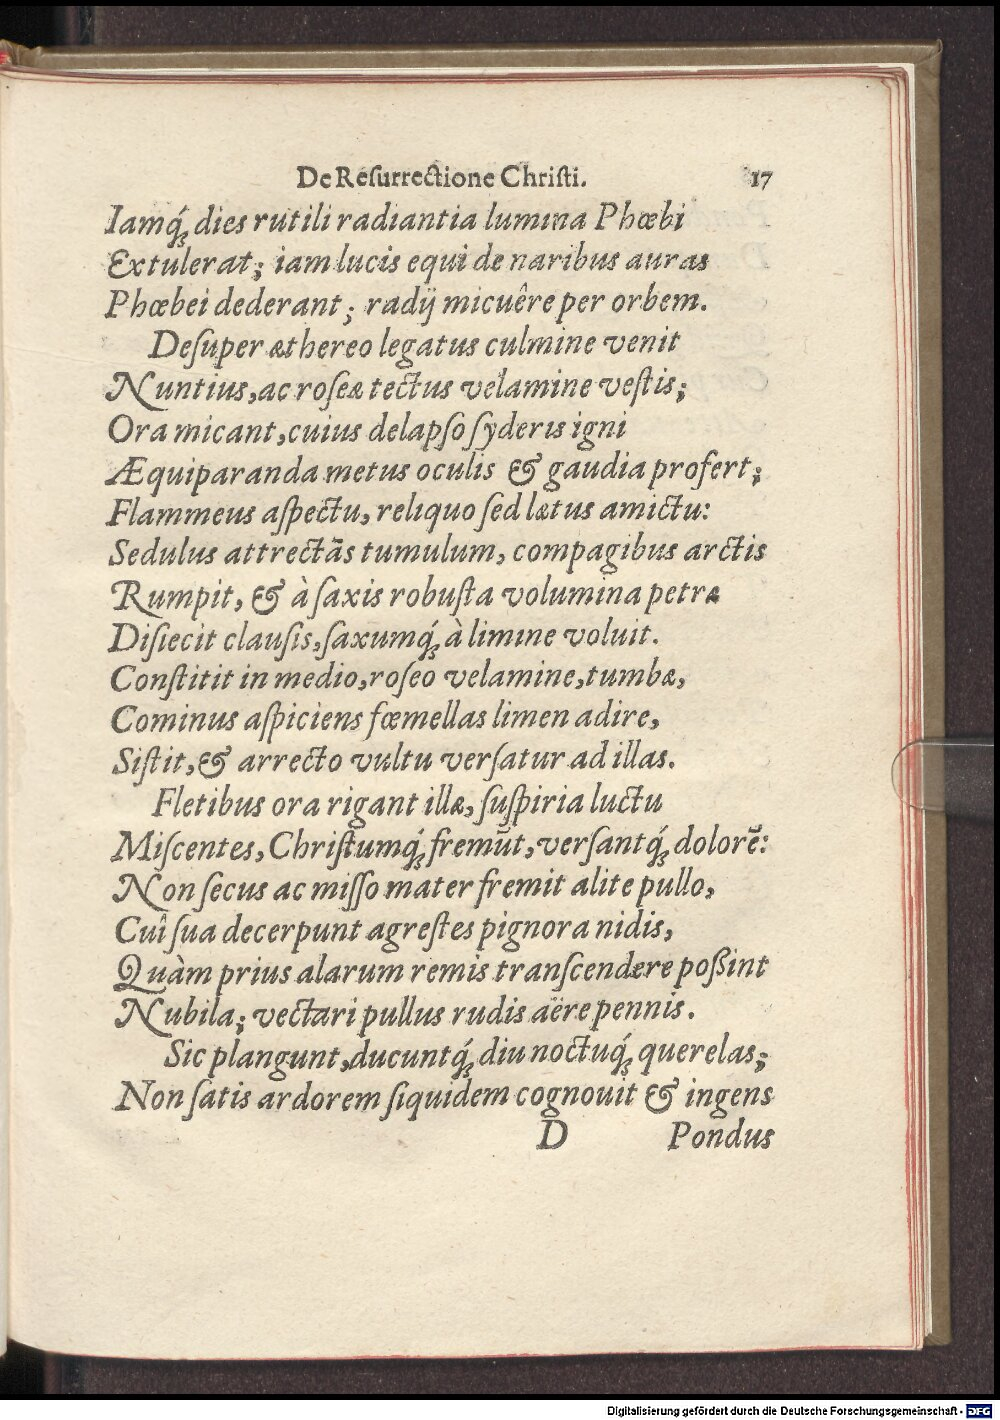 De Reſurrectione Chriſti. 17
Iamq́; dies rutili radiantia lumina Phœbi
Extulerat; iam lucis equi de naribus auras
Phœbei dederant; radij micuêre per orbem.
Deſuper æthereo legatus culmine venit
Nuntius, ac roſeæ tectus velamine veſtis;
Ora micant, cuius delapſo ſyderis igni
Æquiparanda metus oculis & gaudia profert;
Flammeus aſpectu, reliquo ſed lætus amictu:
Sedulus attrectãs tumulum, compagibus arctis
Rumpit, & à ſaxis robuſta volumina petræ
Diſiecit clauſis, ſaxumq́; à limine voluit.
Conſtitit in medio, roſeo velamine, tumbæ,
Cominus aſpiciens fœmellas limen adire,
Siſtit, & arrecto vultu verſatur ad illas.
Fletibus ora rigant illæ, ſuſpiria luctu
Miſcentes, Chriſtumq́; fremũt, verſantq́; dolorẽ:
Non ſecus ac miſſo mater fremit alite pullo,
Cuî ſua decerpunt agreſtes pignora nidis,
Quàm prius alarum remis tranſcendere poßint
Nubila; vectari pullus rudis aëre pennis.
Sic plangunt, ducuntq́; diu noctuq́; querelas;
Non ſatis ardorem ſiquidem cognouit & ingens
D Pondus
Digitalisierung gefördert durch die Deutsche Forschungsgemeinschaft - DFG